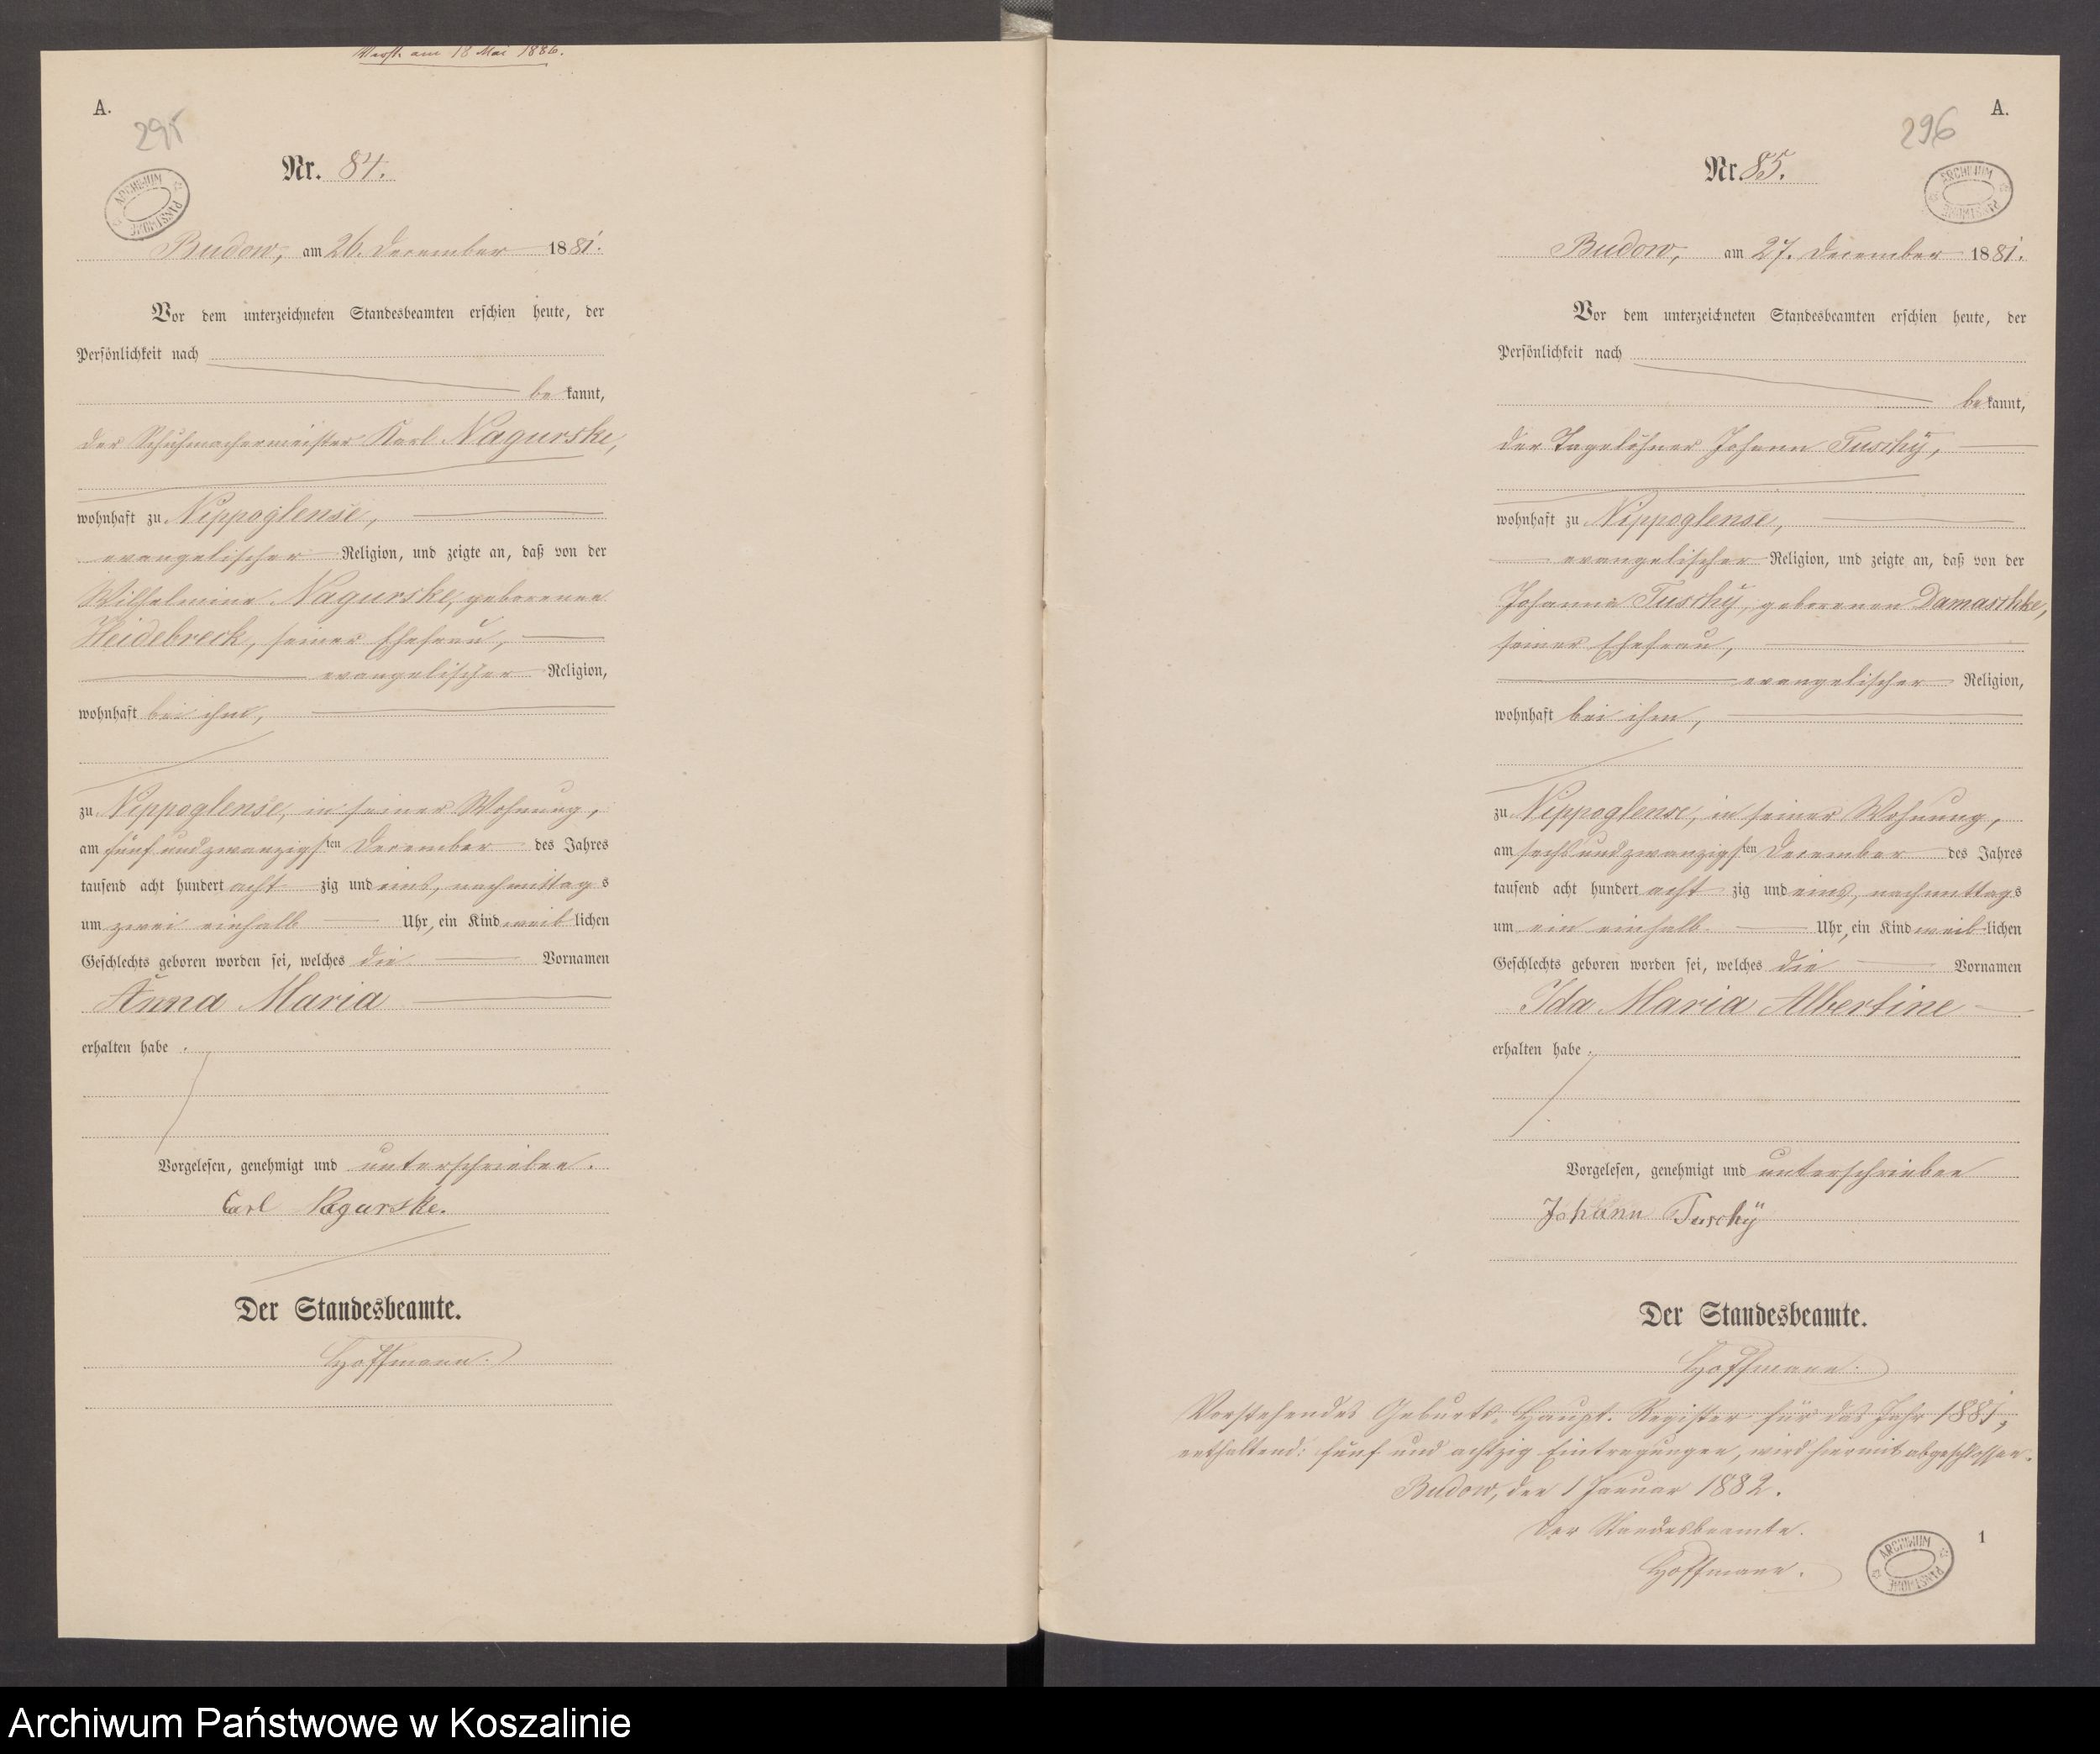 Verst. am 18 Mai 1886.
A.
295
Nr. 84.
ARCHIWUM PAŃSTWOWE
Budow, am 26. December 1881.
Vor dem unterzeichneten Standesbeamten erschien heute, der
Persönlichkeit nach
bekannt,
der Schuhmachermeister Karl Nagurske,
wohnhaft zu Nippoglense,
evangelischer Religion, und zeigte an, daß von der
Wilhelmine Nagurske, geborenen
Heidebreck, seiner Ehefrau,
evangelischer Religion,
wohnhaft bei ihm,
zu Nippoglense, in seiner Wohnung,
am fünf und zwanzigsten December des Jahres
tausend acht hundert acht zig und eins, nachmittags
um zwei einhalb Uhr, ein Kind weiblichen
Geschlechts geboren worden sei, welches die Vornamen
Anna Maria
erhalten habe.
Vorgelesen, genehmigt und unterschrieben.
Carl Nagurske.
Der Standesbeamte.
Hoffmann.
A.
296
Nr. 85.
ARCHIWUM PAŃSTWOWE
Budow, am 27. December 1881.
Vor dem unterzeichneten Standesbeamten erschien heute, der
Persönlichkeit nach
bekannt,
der Tagelöhner Johann Tuschÿ,
wohnhaft zu Nippoglense,
evangelischer Religion, und zeigte an, daß von der
Johanne Tuschÿ, geborenen Damaschke,
seiner Ehefrau,
evangelischer Religion,
wohnhaft bei ihm,
zu Nippoglense, in seiner Wohnung,
am sechs und zwanzigsten December des Jahres
tausend acht hundert acht zig und eins, nachmittags
um ein einhalb Uhr, ein Kind weiblichen
Geschlechts geboren worden sei, welches die Vornamen
Ida Maria Albertine
erhalten habe.
Vorgelesen, genehmigt und unterschrieben
Johann Tuschÿ
Der Standesbeamte.
Hoffmann.
Vorstehendes Geburts-Haupt-Register für das Jahr 1881,
enthaltend: fünf und achtzig Eintragungen, wird hiermit abgeschlossen.
Budow, den 1 Januar 1882.
Der Standesbeamte.
Hoffmann.
ARCHIWUM PAŃSTWOWE
1
Archiwum Państwowe w Koszalinie